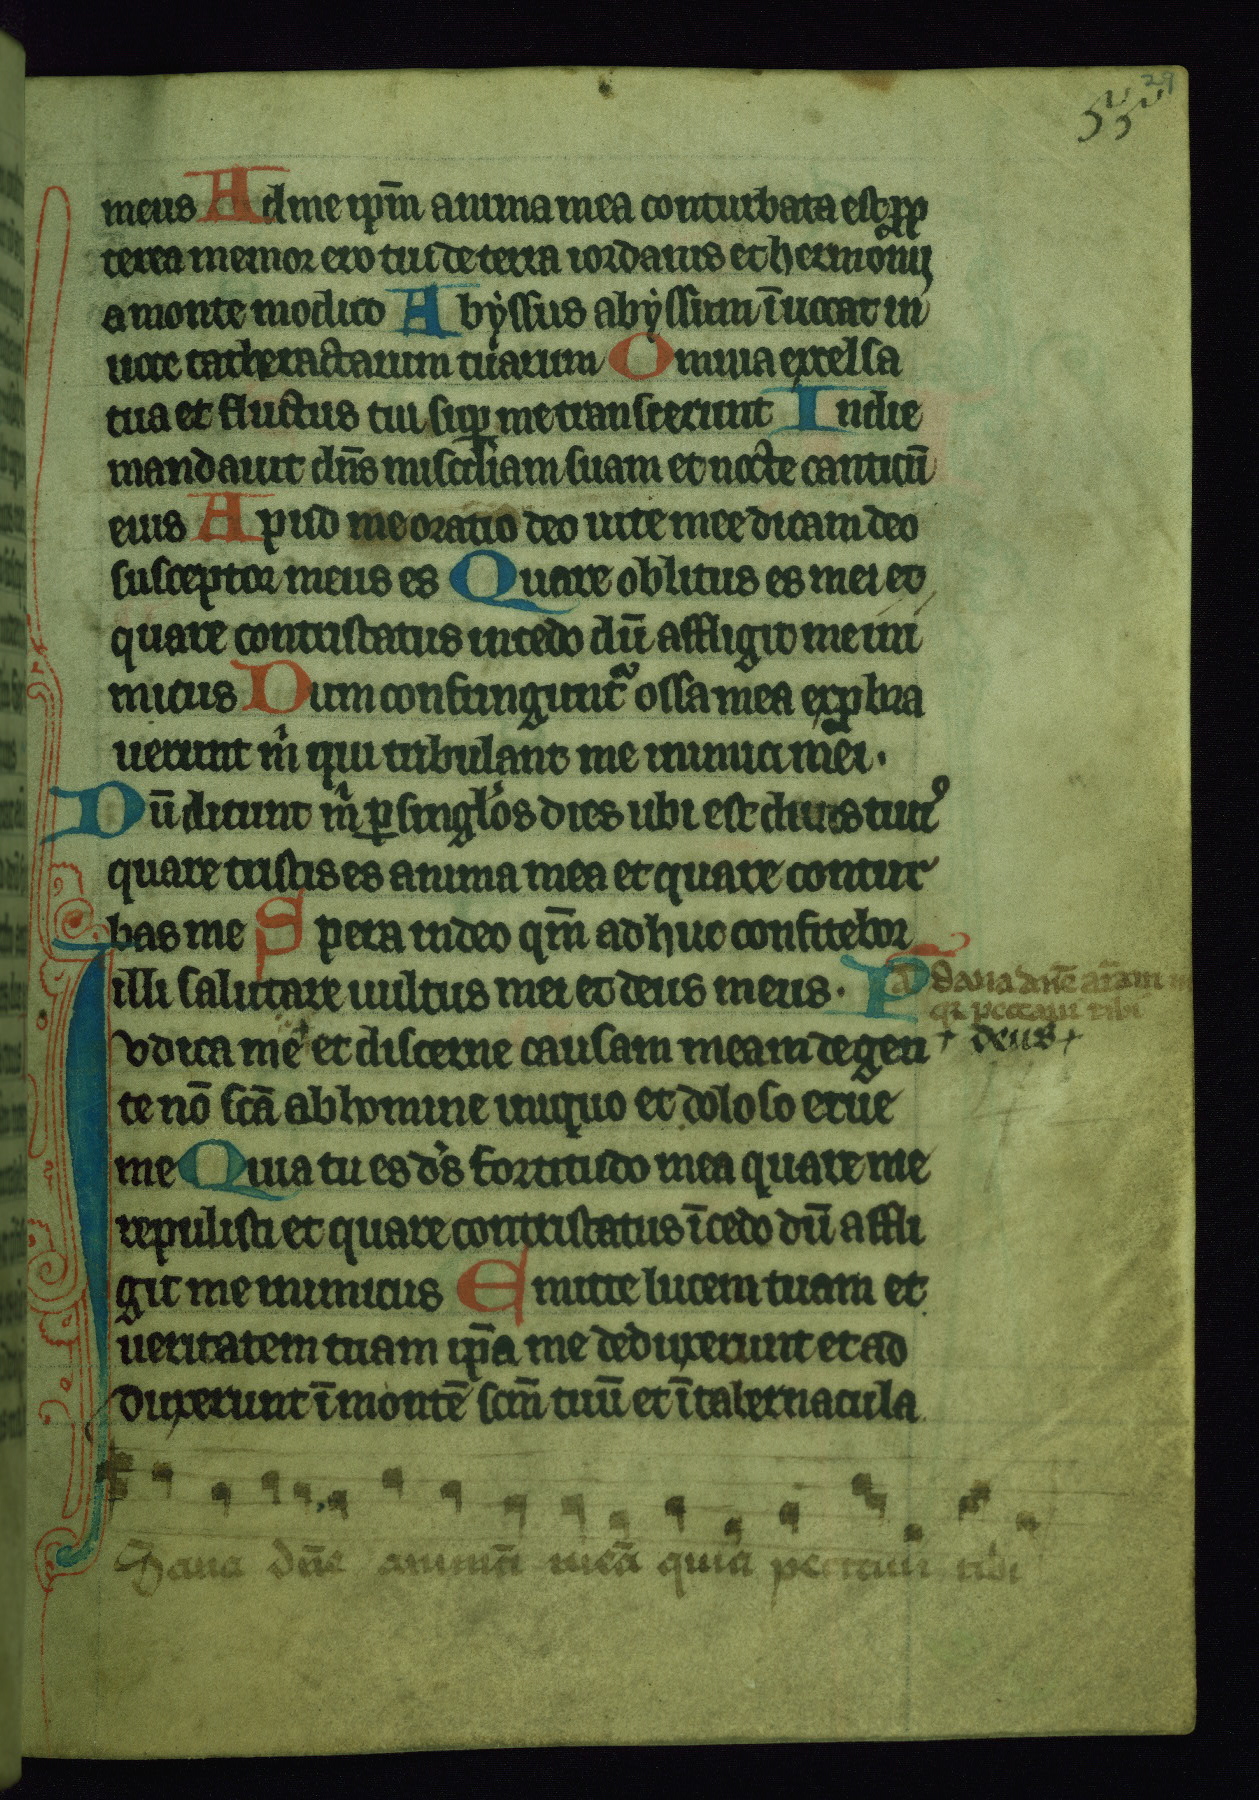 29
55
meus Ad me ip̄m anima mea conturbata est ꝓp
terea memor ero tui de terra iordanis et hermonij
a monte modico Abẏssus abẏssum ī uocat in
uoce catheractarum tuarum Omnia excelsa
tua et fluctus tui suꝑ me transierunt In die
mandauit dn̄s miscd̄iam suam et nocte canticū
eius Apud me oratio deo uite mee dicam deo
susceptor meus es Quare oblitus es mei et
quare contristatus incedo dū affligit me ini
micus Dum confringunt᷑ ossa mea exꝓbra
uerunt m̍ qui tribulant me inimici mei.
Dū dicunt m̍ ꝑ singl̓os dies ubi est deus tuꝰ
quare tristis es anima mea et quare contur
bas me Spera in deo qm̄ adhuc confitebor
illi salutare uultus mei et deus meus. P
a Sana dn̄e aīam m
qꝛ peccaui tibi
Iudica me et discerne causam meam de gen + deus +
te nō sc̄a ab homine iniquo et doloso erue
me Quia tu es d̓s fortitudo mea quare me
repulisti et quare contristatus īcedo dū affli
git me inimicus Emitte lucem tuam et
ueritatem tuam ip̄a me deduxerunt et ad
duxerunt ī montē sc̄m tuū et ī tabernacula
Sana dn̄e animā meā quia peccaui tibi